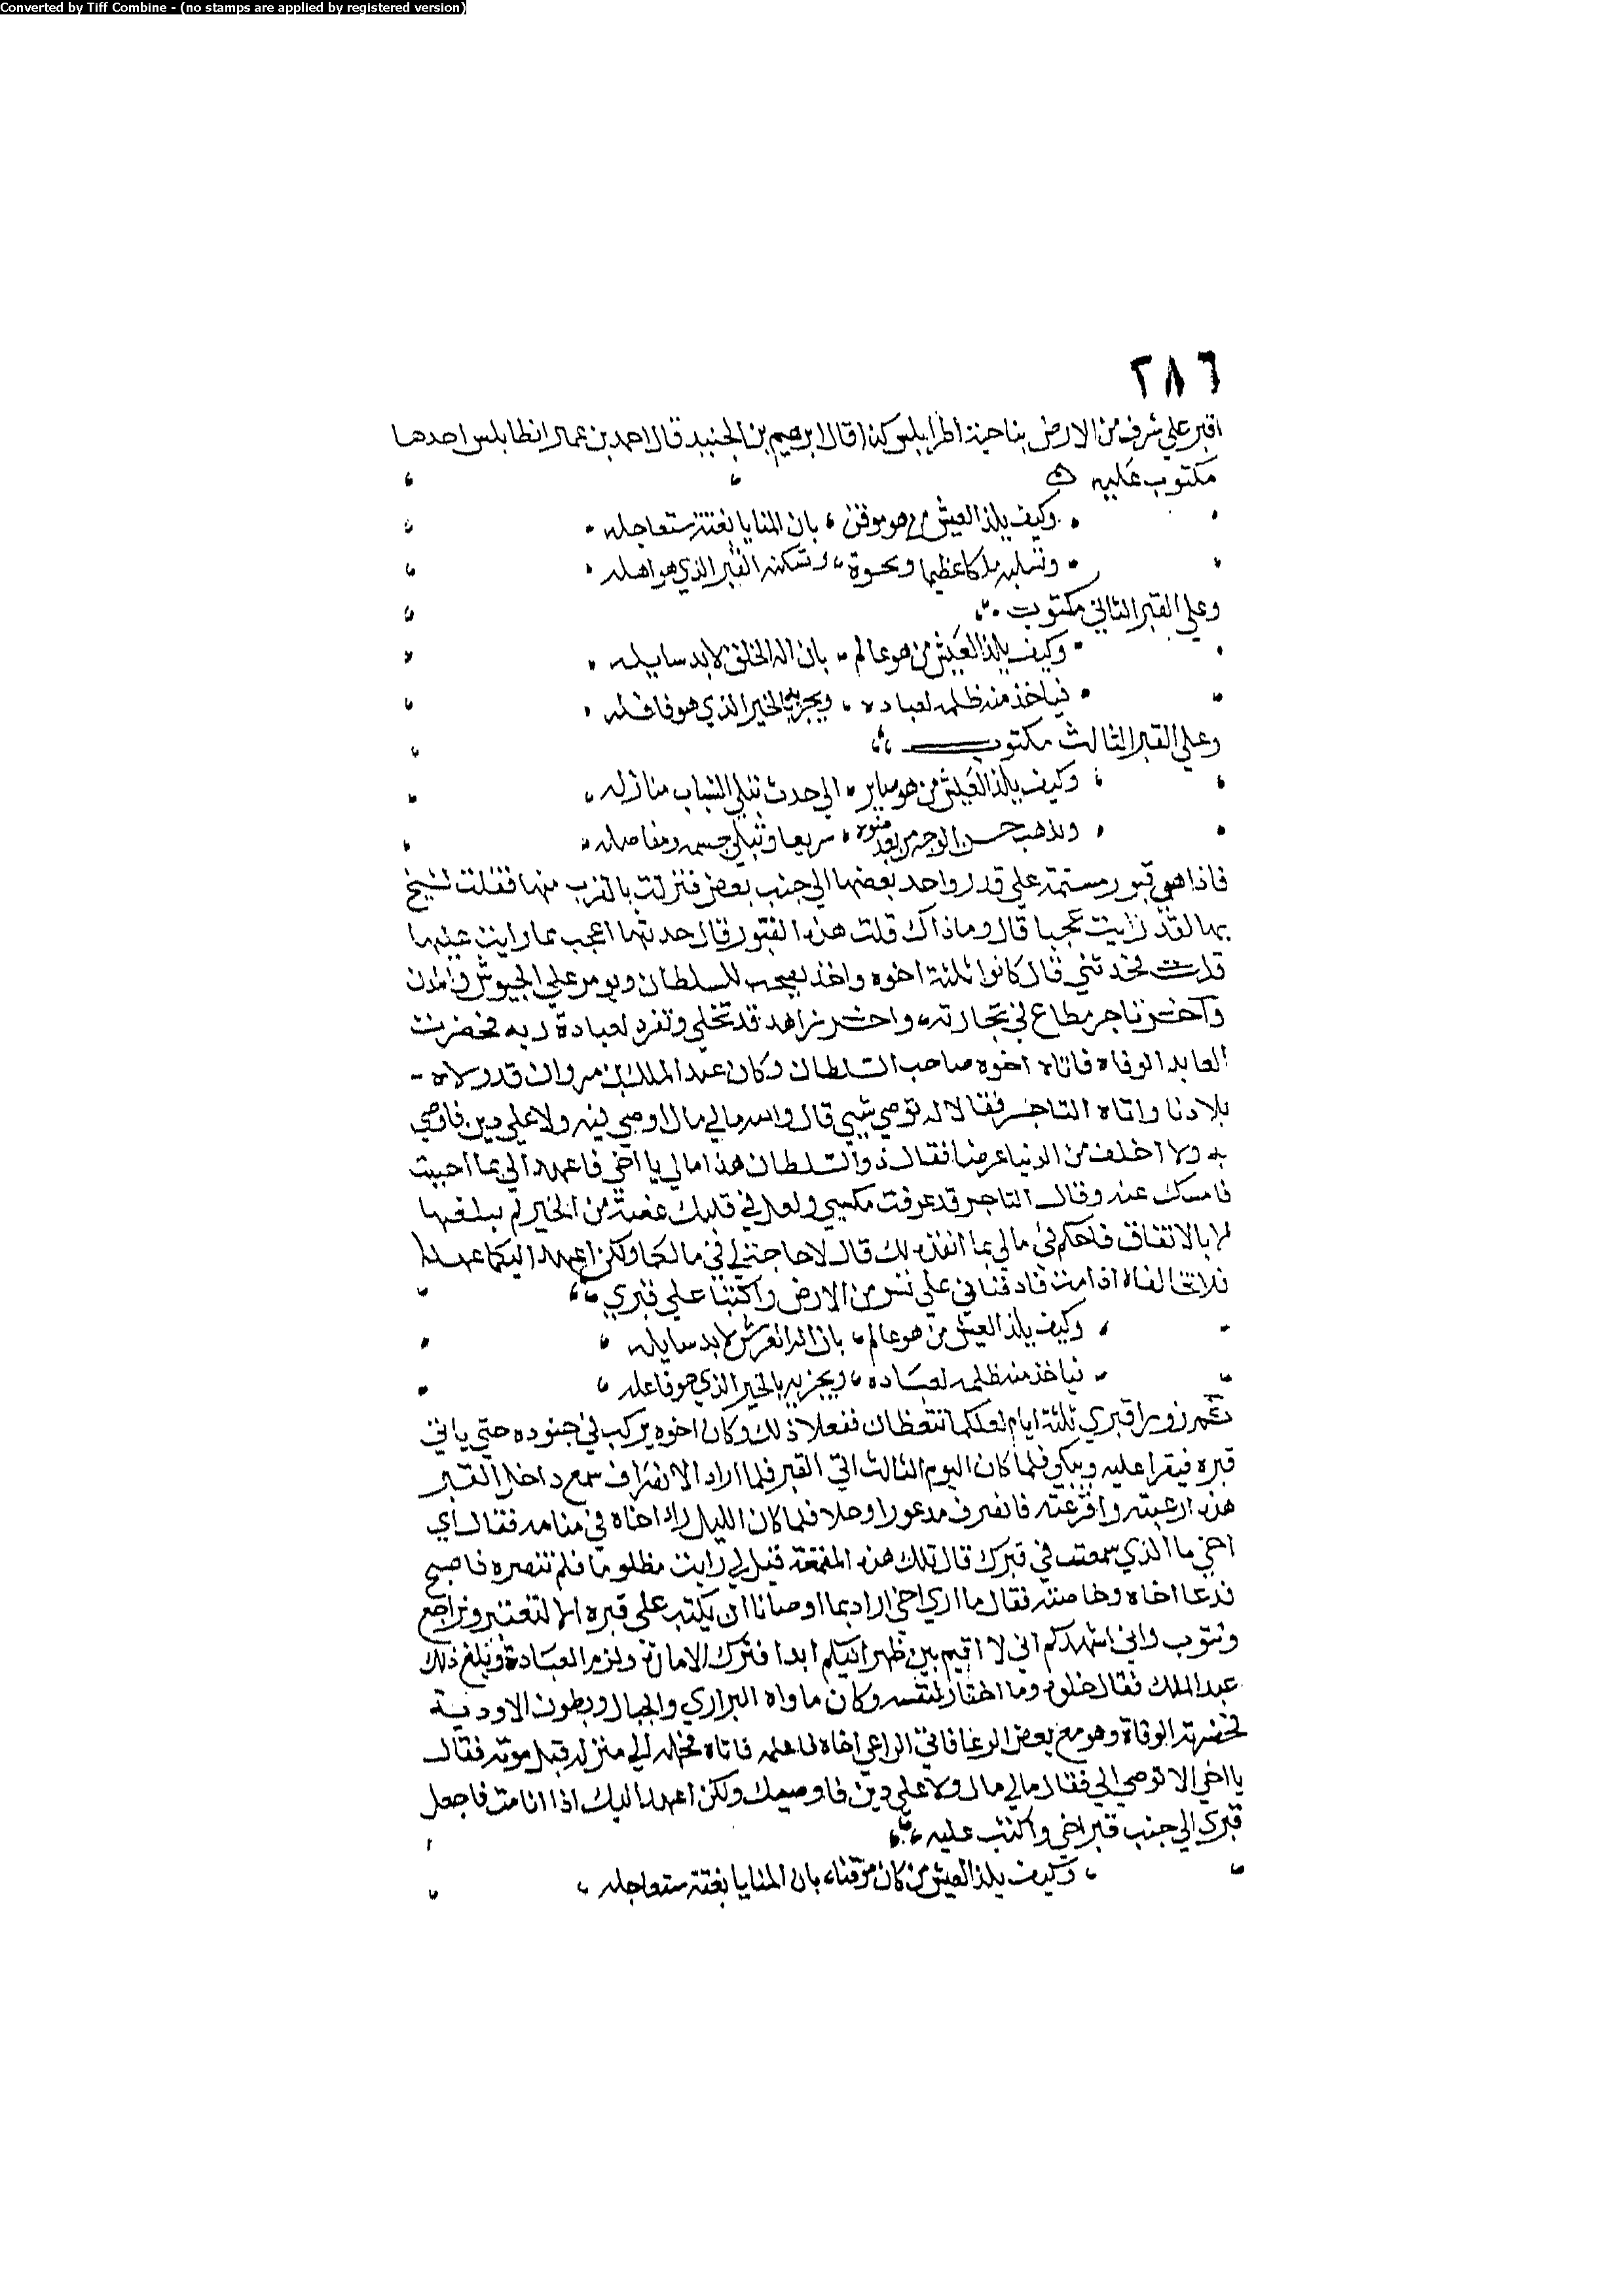 Converted by Tiff Combine - (no stamps are applied by registered version)
٢٨٦
اقبر علي شرف من الارض بناحية اطرابلس كذا قال ابرهيم بن الجنيد قال احمد بن عمار انطابلس احدها
مكتوب عليه
وكيف يلذ العيش من هو موقن ، بان المنايا بغتة ستعاجله
وتسلبه ملكا عظيما ونخوة ، وتسكنه القبر الذي هو اهله
وعلي القبر الثاني مكتوب
وكيف يلذ العيش من هو عالم ، بان اله الخلق لا بد سايله
فياخذ منه ظلمه لعباده ، ويجزيه بالخير الذي هو فاعله
وعلي القبر الثالث مكتوب
وكيف يلذ العيش من هو صاير ، الي جدث تبلي الشباب منازله
ويذهب حسن الوجه من بعد ضوه ، سريعا وتبلي جسمه ومفاصله
فاذا هي قبور مسنمة علي قدر واحد بعضها الي جنب بعض فنزلت بالقرب منها فقلت لشيخ
بها لقد رايت عجبا قال وما ذاك قلت هذه القبور قال حديثها اعجب مما رايت عليها
قلت فحدثني قال كانوا ثلثة اخوة واخذ يصحب السلطان ويومر علي الجيوش والمدن
واخر تاجر مطاع في تجارته واخر زاهد قد تخلي وتفرد لعبادة ربه فحضرت
العابد الوفاه فاتاه اخوه صاحب السلطان وكان عبد الملك بن مروان قد ولاه -
بلادنا واتاه التاجر فقالا له توصي بشي قال والله مالي مال اوصي فيه ولا علي دين فاوصي
به ولا اخلف من الدنيا عرضا فقال ذو السلطان هذا مالي يا اخي فاعهد الي بما احببت
فامسك عنه وقال التاجر قد عرفت مكسبي ولعل في قلبك غصة من الخير لم يبلغها
الا بالانفاق فاحكم في مالي بما انفذه لك قال لا حاجة لي في مالكما ولكن اعهد اليكما عهدا
فلا تخالفاه اذا مت فادفناني علي نشز من الارض واكتبا علي قبري
وكيف يلذ العيش من هو عالم ، بان اله العرش لا بد سايله
فياخذ منه ظلمه لعباده ، ويجزيه بالخير الذي هو فاعله
ثم زورا قبري ثلثة ايام لعلكما تتعظان ففعلا ذلك وكان اخوه يركب في جنوده حتي ياتي
قبره فيقرا عليه ويبكي فلما كان اليوم الثالث اتي القبر فلما اراد الانصراف سمع داخل القبر
هدة ارعبته وافزعته فانصرف مدعورا وجلا فلما كان الليل راا اخاه في منامه فقال اي
اخي ما الذي سمعت في قبرك قال تلك هدة المقمعة قيل لي رايت مظلوما فلم تنصره فاصبح
فدعا اخاه وخاصته فقال ما اري اخي اراد بما اوصانا ان يكتب علي قبره الا لنعتبر ونراجع
ونتوب واني اشهدكم اني لا اقيم بين ظهرانيكم ابدا فترك الامارة ولزم العبادة وبلغ ذلك
عبد الملك فقال خلوه وما اختار لنفسه وكان ماواه البراري والجبال وبطون الاودية
فحضرته الوفاة وهو مع بعض الرعا فاتي الراعي اخاه فاعلمه فاتاه فحمله الي منزله قبل موته فقال
يا اخي الا توصي الي فقال مالي مال ولا علي دين فاوصيك ولكن اعهد اليك اذا انا مت فاجعل
قبري الي جنب قبر اخي واكتب عليه
وكيف يلذ العيش من كان موقنا ، بان المنايا بغتة ستعاجله